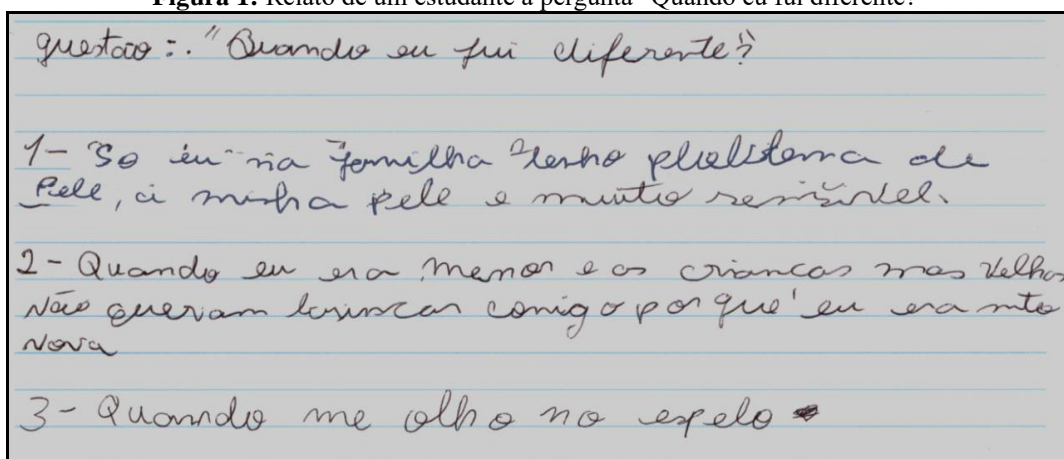 Figura 1: Relato de um estudante à pergunta "Quando eu fui diferente?"
questao :. "Quando eu fui diferente"?
1- So eu na familha tenho plobletema de
Pele, a minha pele e muito sensivel.
2- Quando eu era menor e as criancas mas velhas
não queriam brinscar comigo por que eu era mto
Nova
3- Quando me olho no espelo